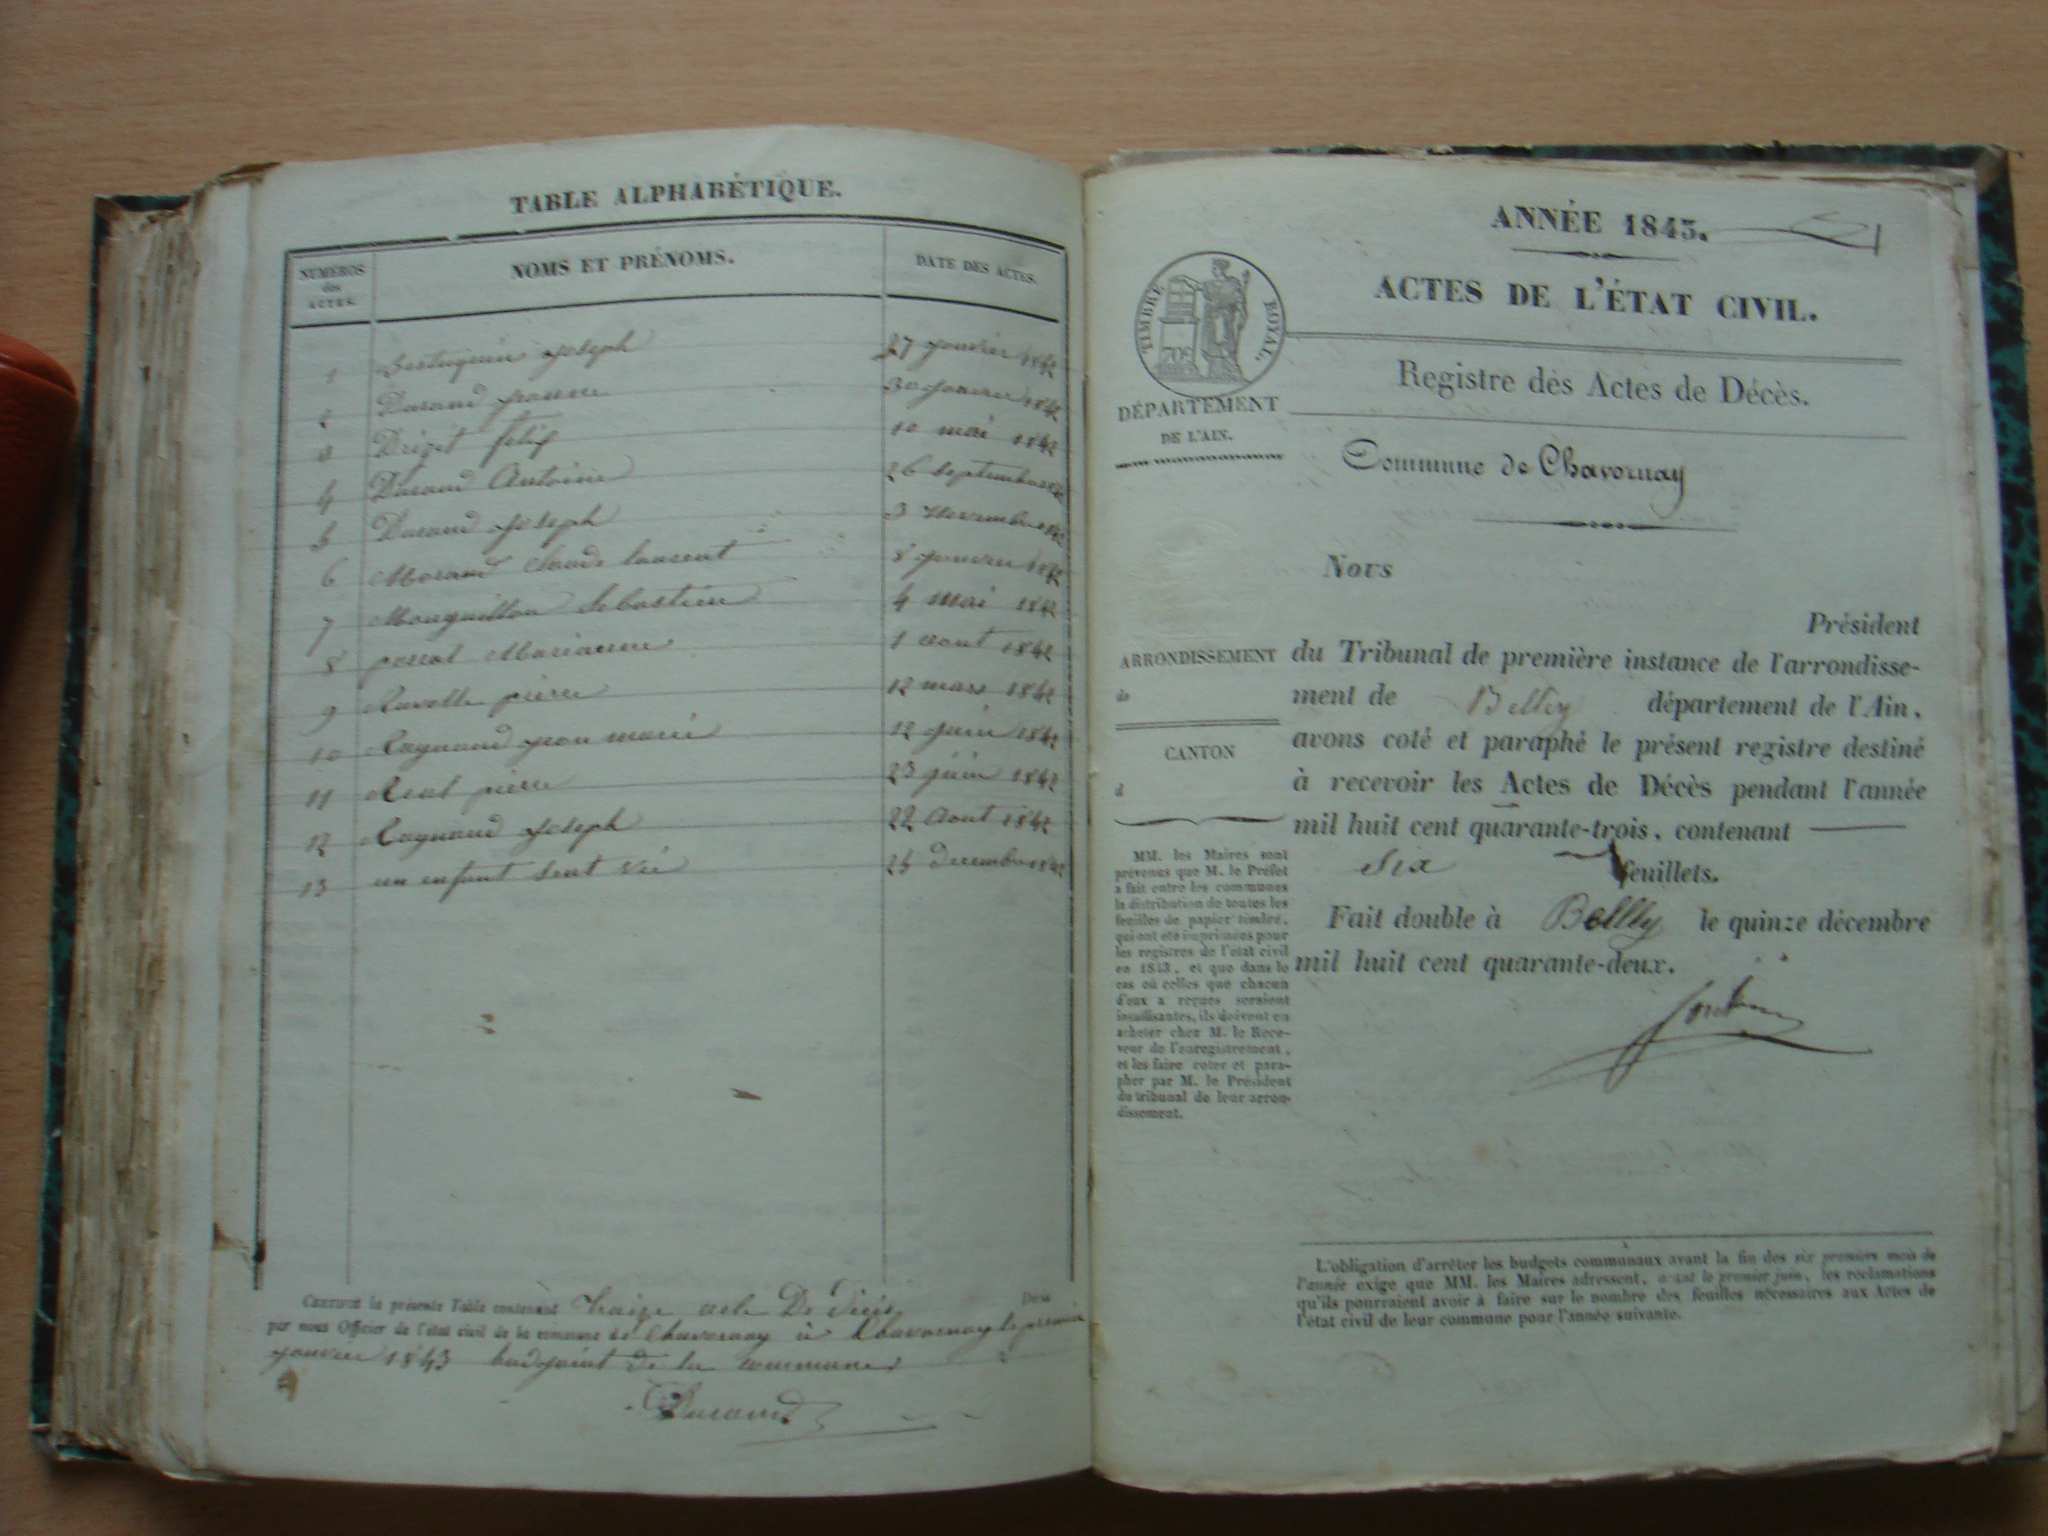 TABLE ALPHABÉTIQUE.
NUMÉROS
des
ACTES.
NOMS ET PRÉNOMS.
DATE DES ACTES.
1 Joseph 27 janvier 1842
2 Durand 30 janvier 1842
3 Drizet felix 10 mai 1842
4 Durand Antoine 26 septembre 1842
5 Durand Joseph 3 Novembre 1842
6 Morand Claude laurent 8 janvier 1842
7 Monguillon Sebastien 4 mai 1842
8 Marianne 1 aout 1842
9 Ravolle pierre 12 mars 1842
10 Raynaud jean marie 12 juin 1842
11 pierre 23 juin 1842
12 Raynaud Joseph 22 aout 1842
13 un enfant sent vie 25 decembre 1842
CERTIFIÉ la présente Table contenant traize acte De Décès
par nous Officier de l'état civil de la commune de Chavornay à Chavornay le premier
janvier 1843 de la commune
Durand
ANNÉE 1843.
ACTES DE L'ÉTAT CIVIL.
TIMBRE ROYAL.
Registre des Actes de Décès.
DÉPARTEMENT
DE L'AIN.
Commune de Chavornay
NOUS
Président
ARRONDISSEMENT
de
du Tribunal de première instance de l'arrondisse-
ment de Belley département de l'Ain,
avons coté et paraphé le présent registre destiné
CANTON
d
à recevoir les Actes de Décès pendant l'année
mil huit cent quarante-trois, contenant
six feuillets.
Fait double à Belley le quinze décembre
mil huit cent quarante-deux.
MM. les Maires sont
prévenus que M. le Préfet
a fait entre les communes
la distribution de toutes les
feuilles de papier timbré,
qui ont été imprimées pour
les registres de l'état civil
en 1843, et que dans le
cas où celles que chacun
d'eux a reçues seraient
insuffisantes, ils doivent en
acheter chez M. le Rece-
veur de l'enregistrement,
et les faire coter et para-
pher par M. le Président
du tribunal de leur arron-
dissement.
L'obligation d'arrêter les budgets communaux avant la fin des six premiers mois de
l'année exige que MM. les Maires adressent, avant le premier juin, les réclamations
qu'ils pourraient avoir à faire sur le nombre des feuilles nécessaires aux Actes de
l'état civil de leur commune pour l'année suivante.